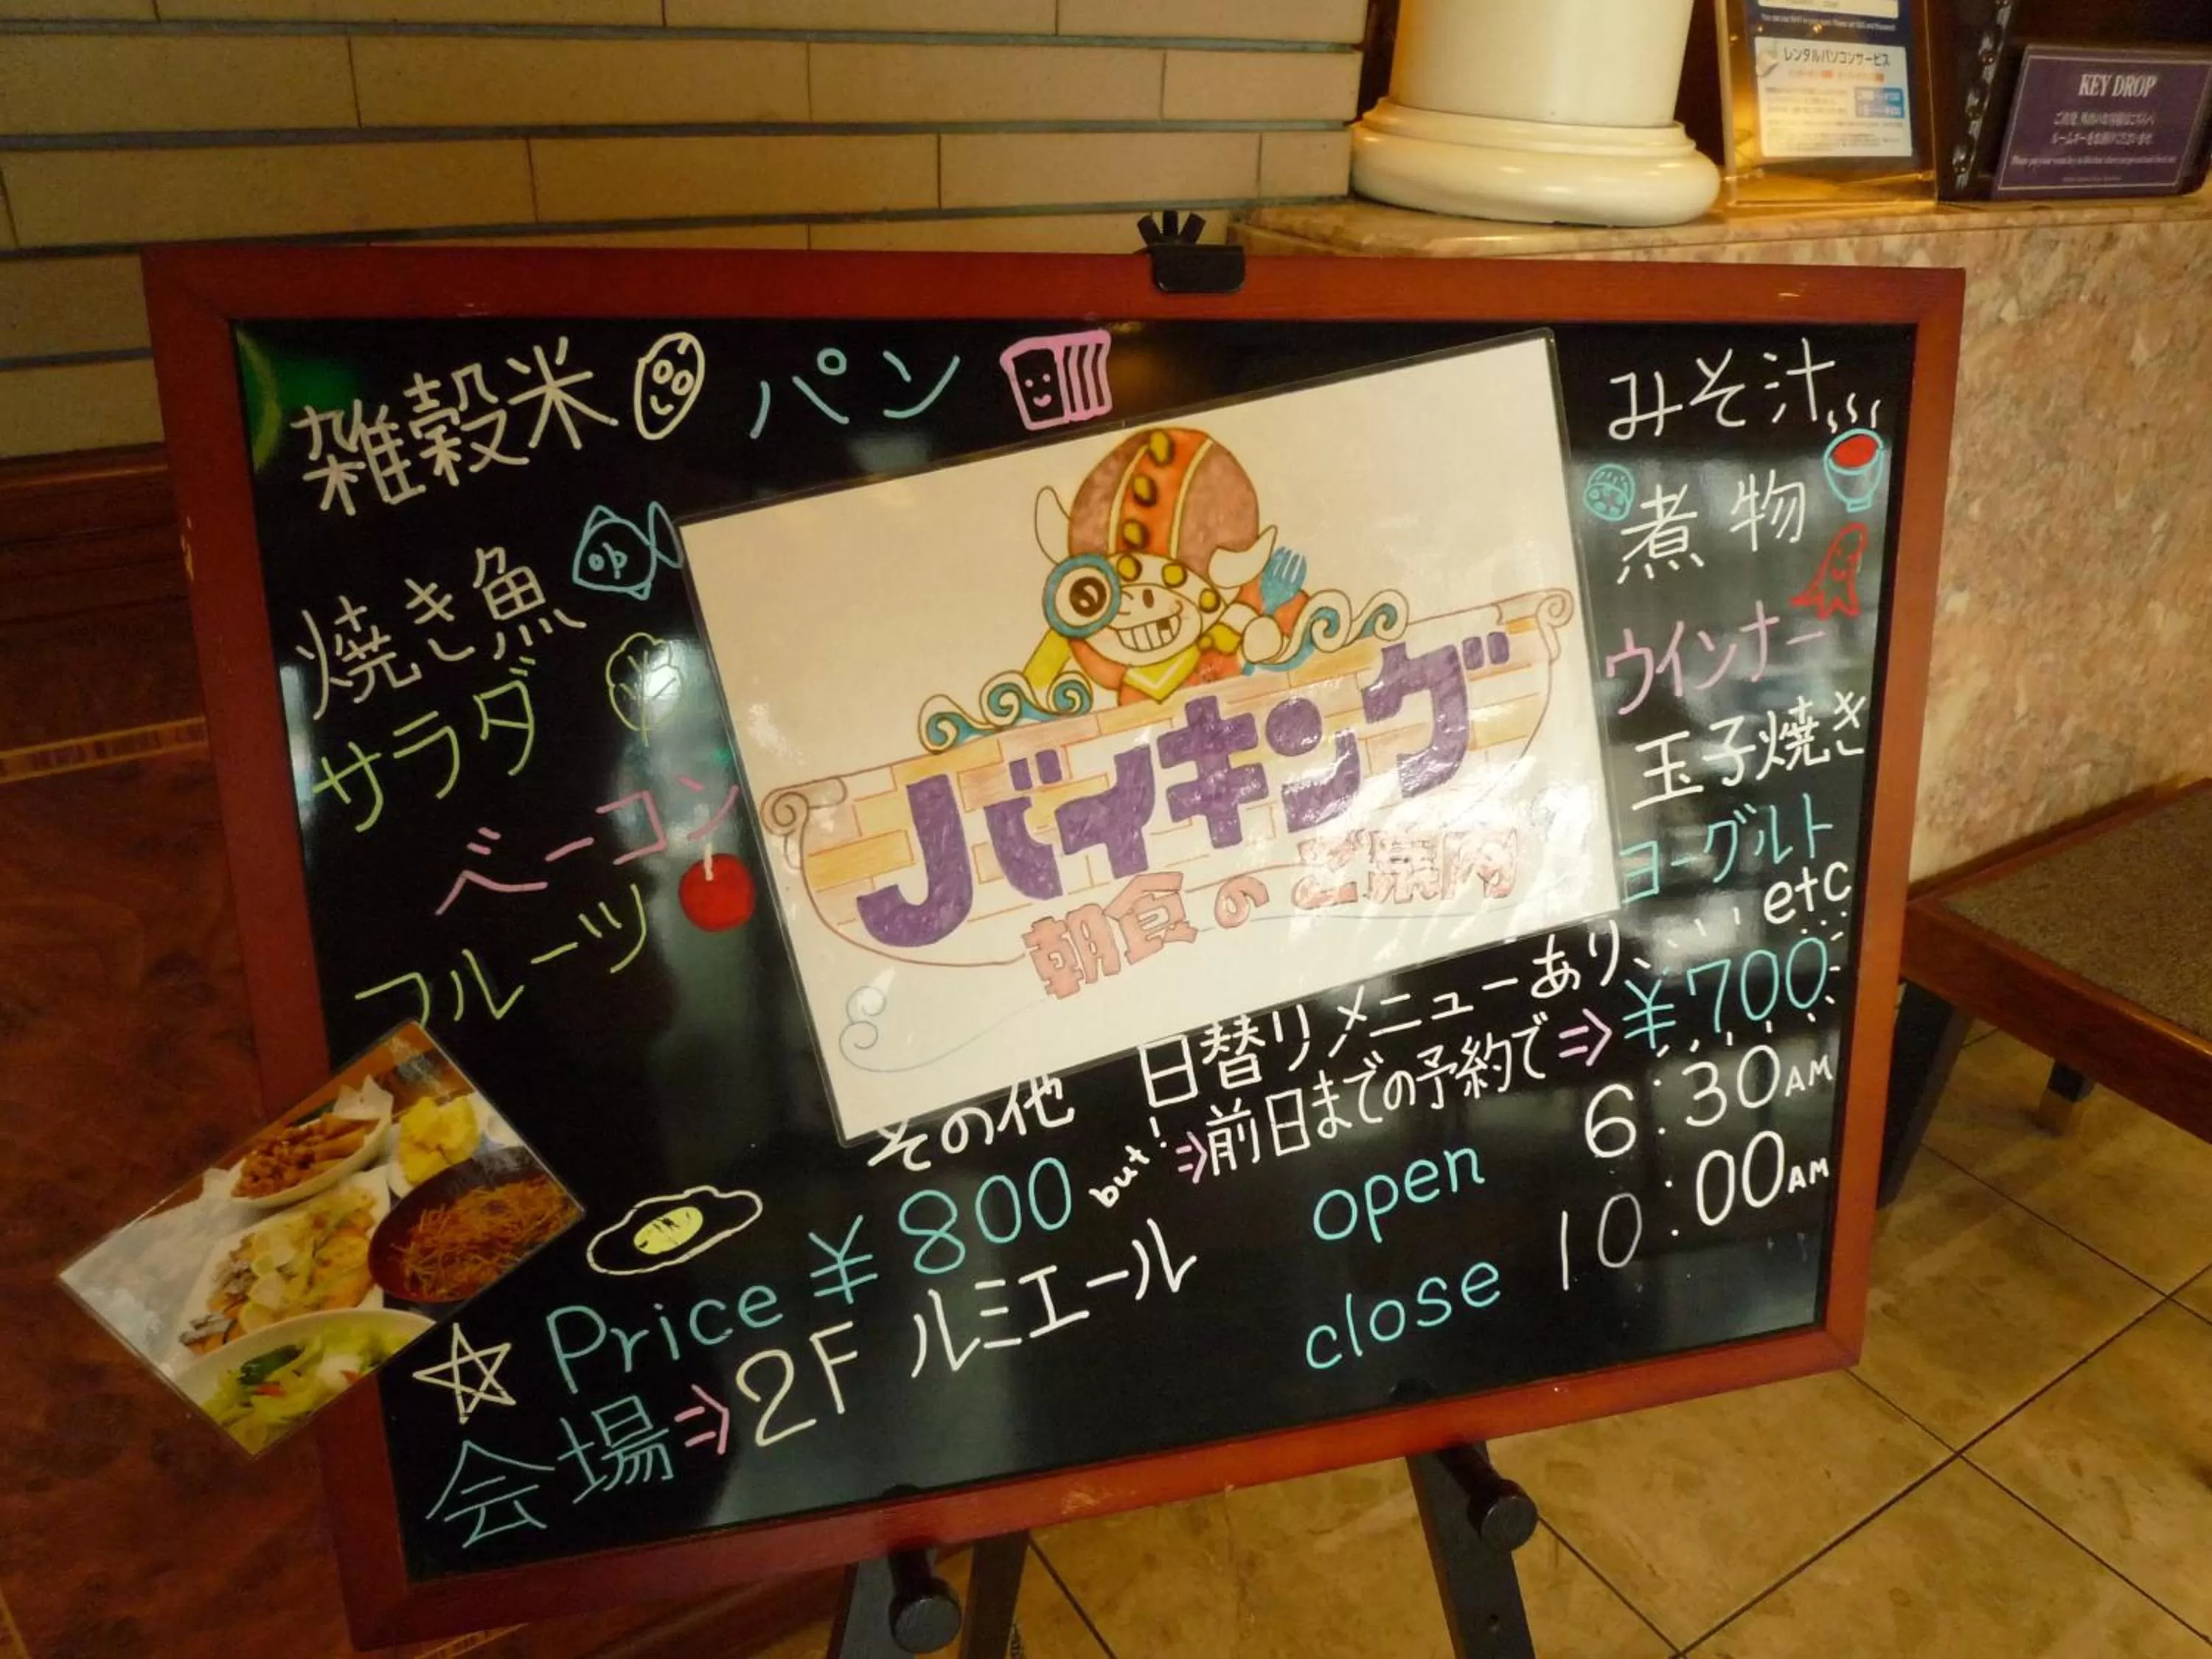 レンタルパソコンサービス
KEY DROP
雑穀米
パン
焼き魚
サラダ
ベーコン
フルーツ
バイキング
朝食のご案内
みそ汁
煮物
ウインナー
玉子焼き
ヨーグルト
etc
その他 日替りメニューあり、
☆ Price ¥800 but! ⇒前日までの予約で⇒ ¥700
会場⇒2F ルミエール
open 6:30AM
close 10:00AM